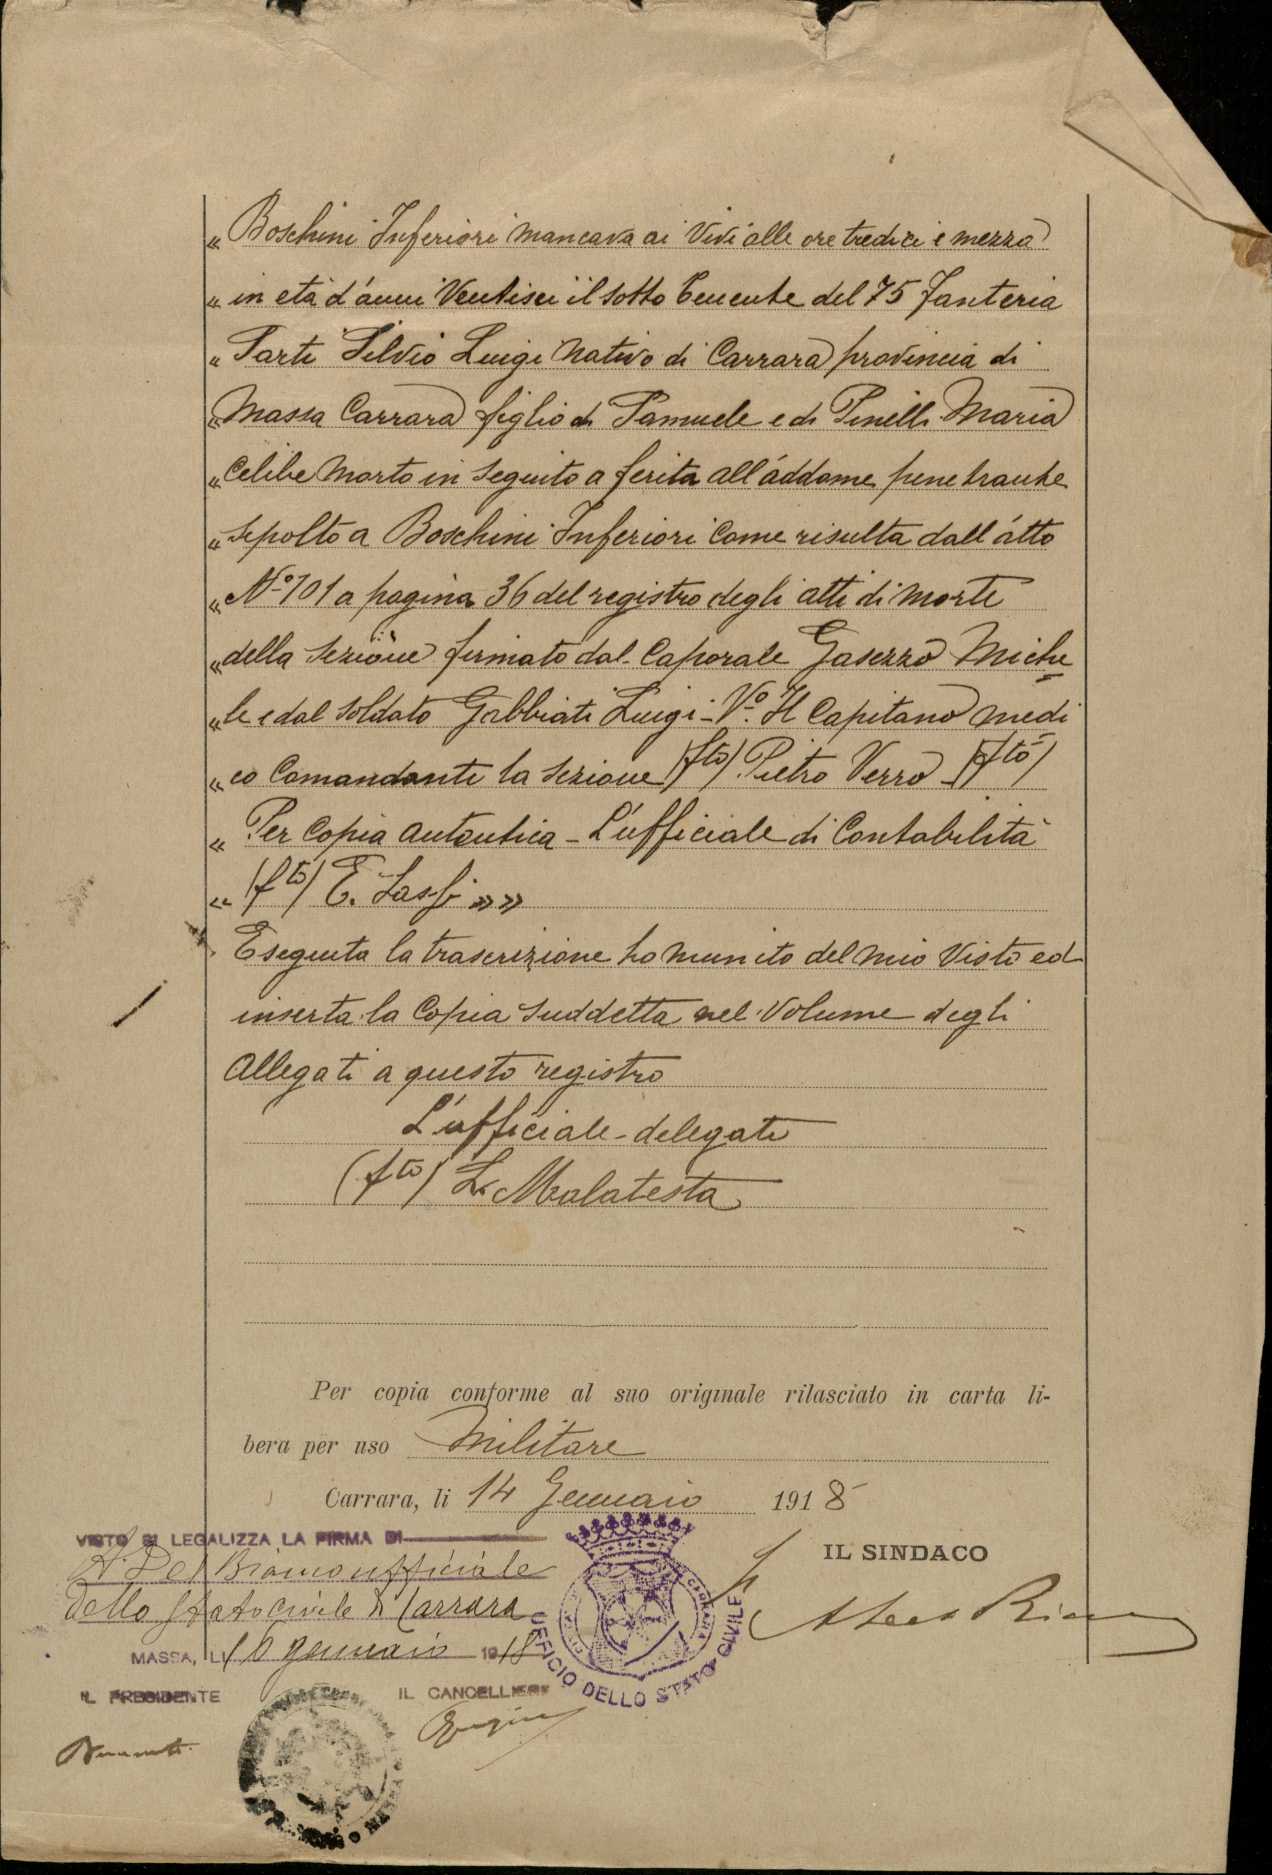 « Boschini Inferiori mancava ai vivi alle ore tredici e mezza
« in età d'anni Ventisei il sotto Tenente del 75 Fanteria
« Sarti Silvio Luigi nativo di Carrara provincia di
« Massa Carrara figlio di Samuele e di Pinelli Maria
« Celibe morto in seguito a ferita all'addome penetrante
« sepolto a Boschini Inferiori come risulta dall'atto
« Nº 101 a pagina 36 del registro degli atti di morte
« della Sezione firmato dal Caporale Gasezzo Miche
« le e dal soldato Gabbiati Luigi - Vº Il Capitano medi
« co Comandante la sezione (fto) Pietro Verro (fto)
« Per Copia autentica - L'ufficiale di Contabilità
« (fto) E. » »
Eseguita la trascrizione ho munito del mio Visto ed
inserta la Copia suddetta nel Volume degli
Allegati a questo registro
L'ufficiale delegato
(fto) L. Malatesta
Per copia conforme al suo originale rilasciato in carta li-
bera per uso Militare
Carrara, li 14 Gennaio 1918
VISTO SI LEGALIZZA LA FIRMA DI
A. Del Bianco ufficiale
dello Stato Civile di Carrara
MASSA, LI 16 gennaio 1918
IL PRESIDENTE
IL CANCELLIERE
IL SINDACO
UFFICIO DELLO STATO CIVILE
CARRARA